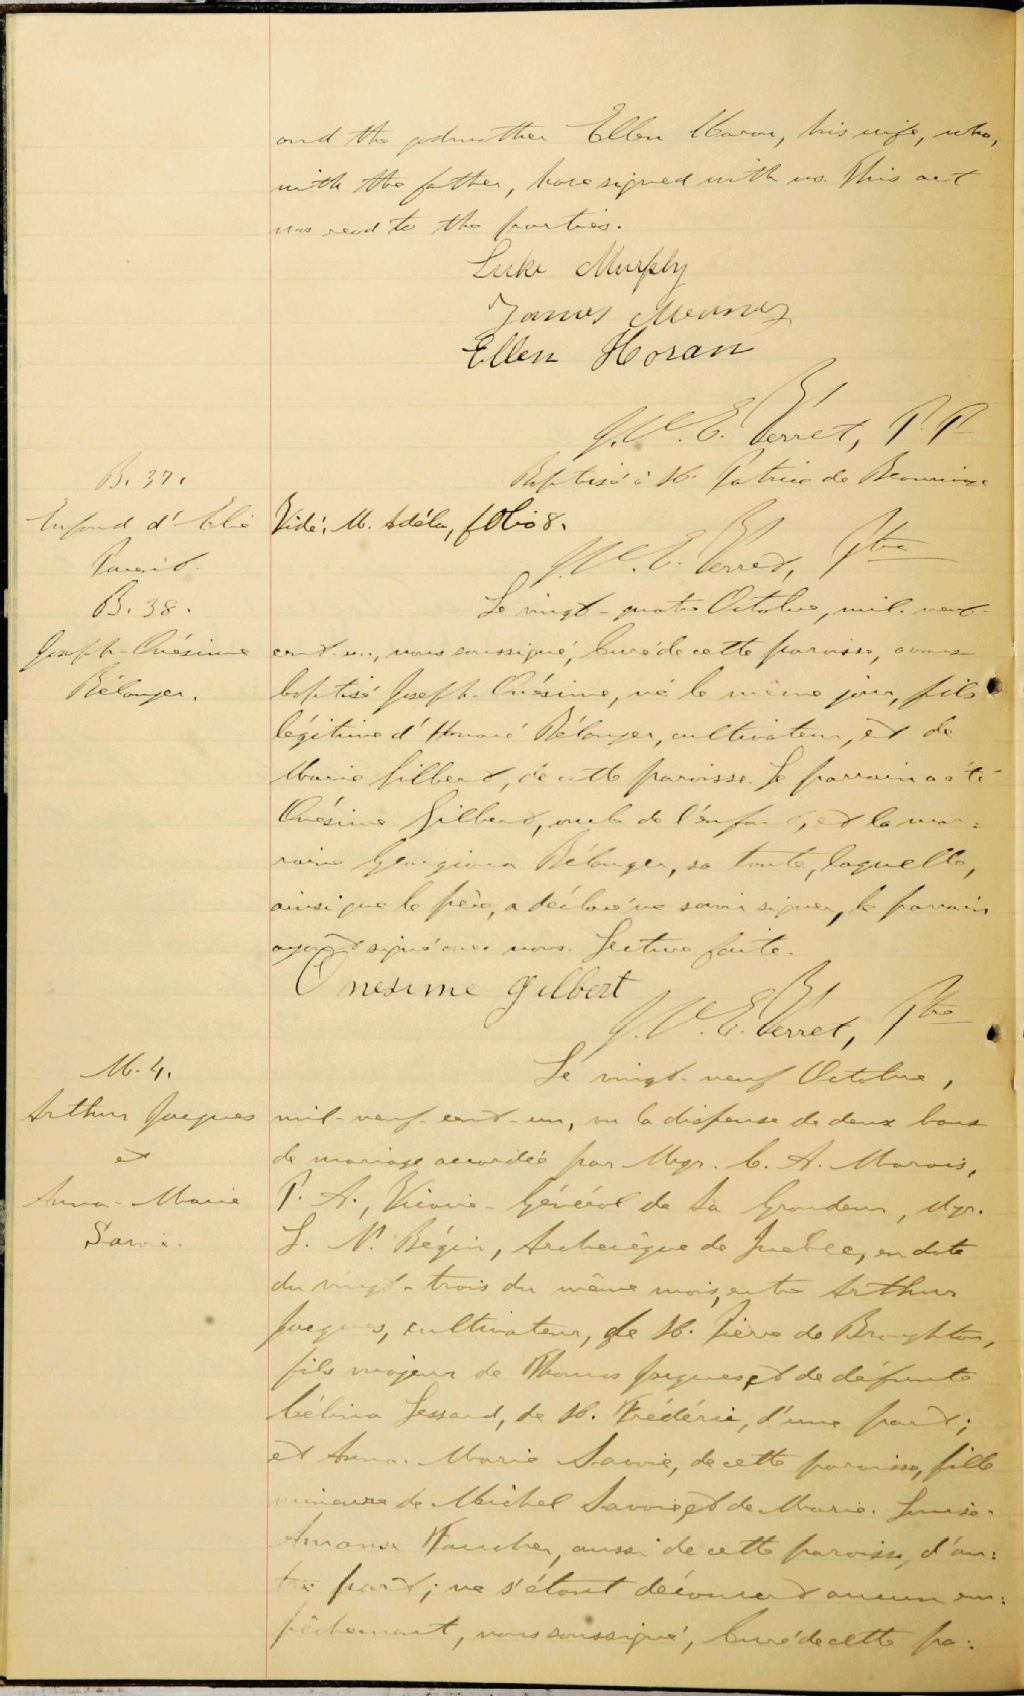 and the godmother Ellen Horan, his wife, who,
with the father, have signed with us. This act
was read to the parties.
Luke Murphy
James
Ellen Horan
J. V. E. Verret, P. P.
B. 37.
Baptisé à St. Patrice de Beaurivage
Enfant d'Elie
Vidé, M. Adéla, folio 8.
Parent.
J. V. E. Verret, Ptre
B. 38.
Le vingt-quatre Octobre, mil-neuf-
Joseph-Onésime
cent-un, nous soussigné, Curé de cette paroisse, avons
Bélanger.
baptisé Joseph-Onésime, né le même jour, fils
légitime d'Honoré Bélanger, cultivateur, et de
Marie Gilbert, de cette paroisse. Le parrain a été
Onésime Gilbert, oncle de l'enfant, et la mar=
raine Georgiana Bélanger, sa tante, laquelle,
ainsi que le père, a déclaré ne savoir signer, le parrain
ayant signé avec nous. Lecture faite.
Onesime Gilbert
J. V. E. Verret, Ptre
M. 4.
Le vingt-neuf Octobre,
Arthur Jacques
mil-neuf-cent-un, vu la dispense de deux bans
et
de mariage accordée par Mgr. C. A. Marois,
Anna-Marie
P. A., Vicaire-Général de Sa Grandeur, Mgr.
Savoie.
L. N. Bégin, Archevêque de Québec, en date
du vingt-trois du même mois, entre Arthur
Jacques, cultivateur, de St. Pierre de Broughton,
fils majeur de Thomas Jacques, et de défunte
Célina Lessard, de St. Frédéric, d'une part;
et Anna-Marie Savoie, de cette paroisse, fille
mineure de Michel Savoie, et de Marie-Louise-
Amanda Faucher, aussi de cette paroisse, d'au=
tre part; ne s'étant découvert aucun em=
pêchement, nous soussigné, Curé de cette pa=